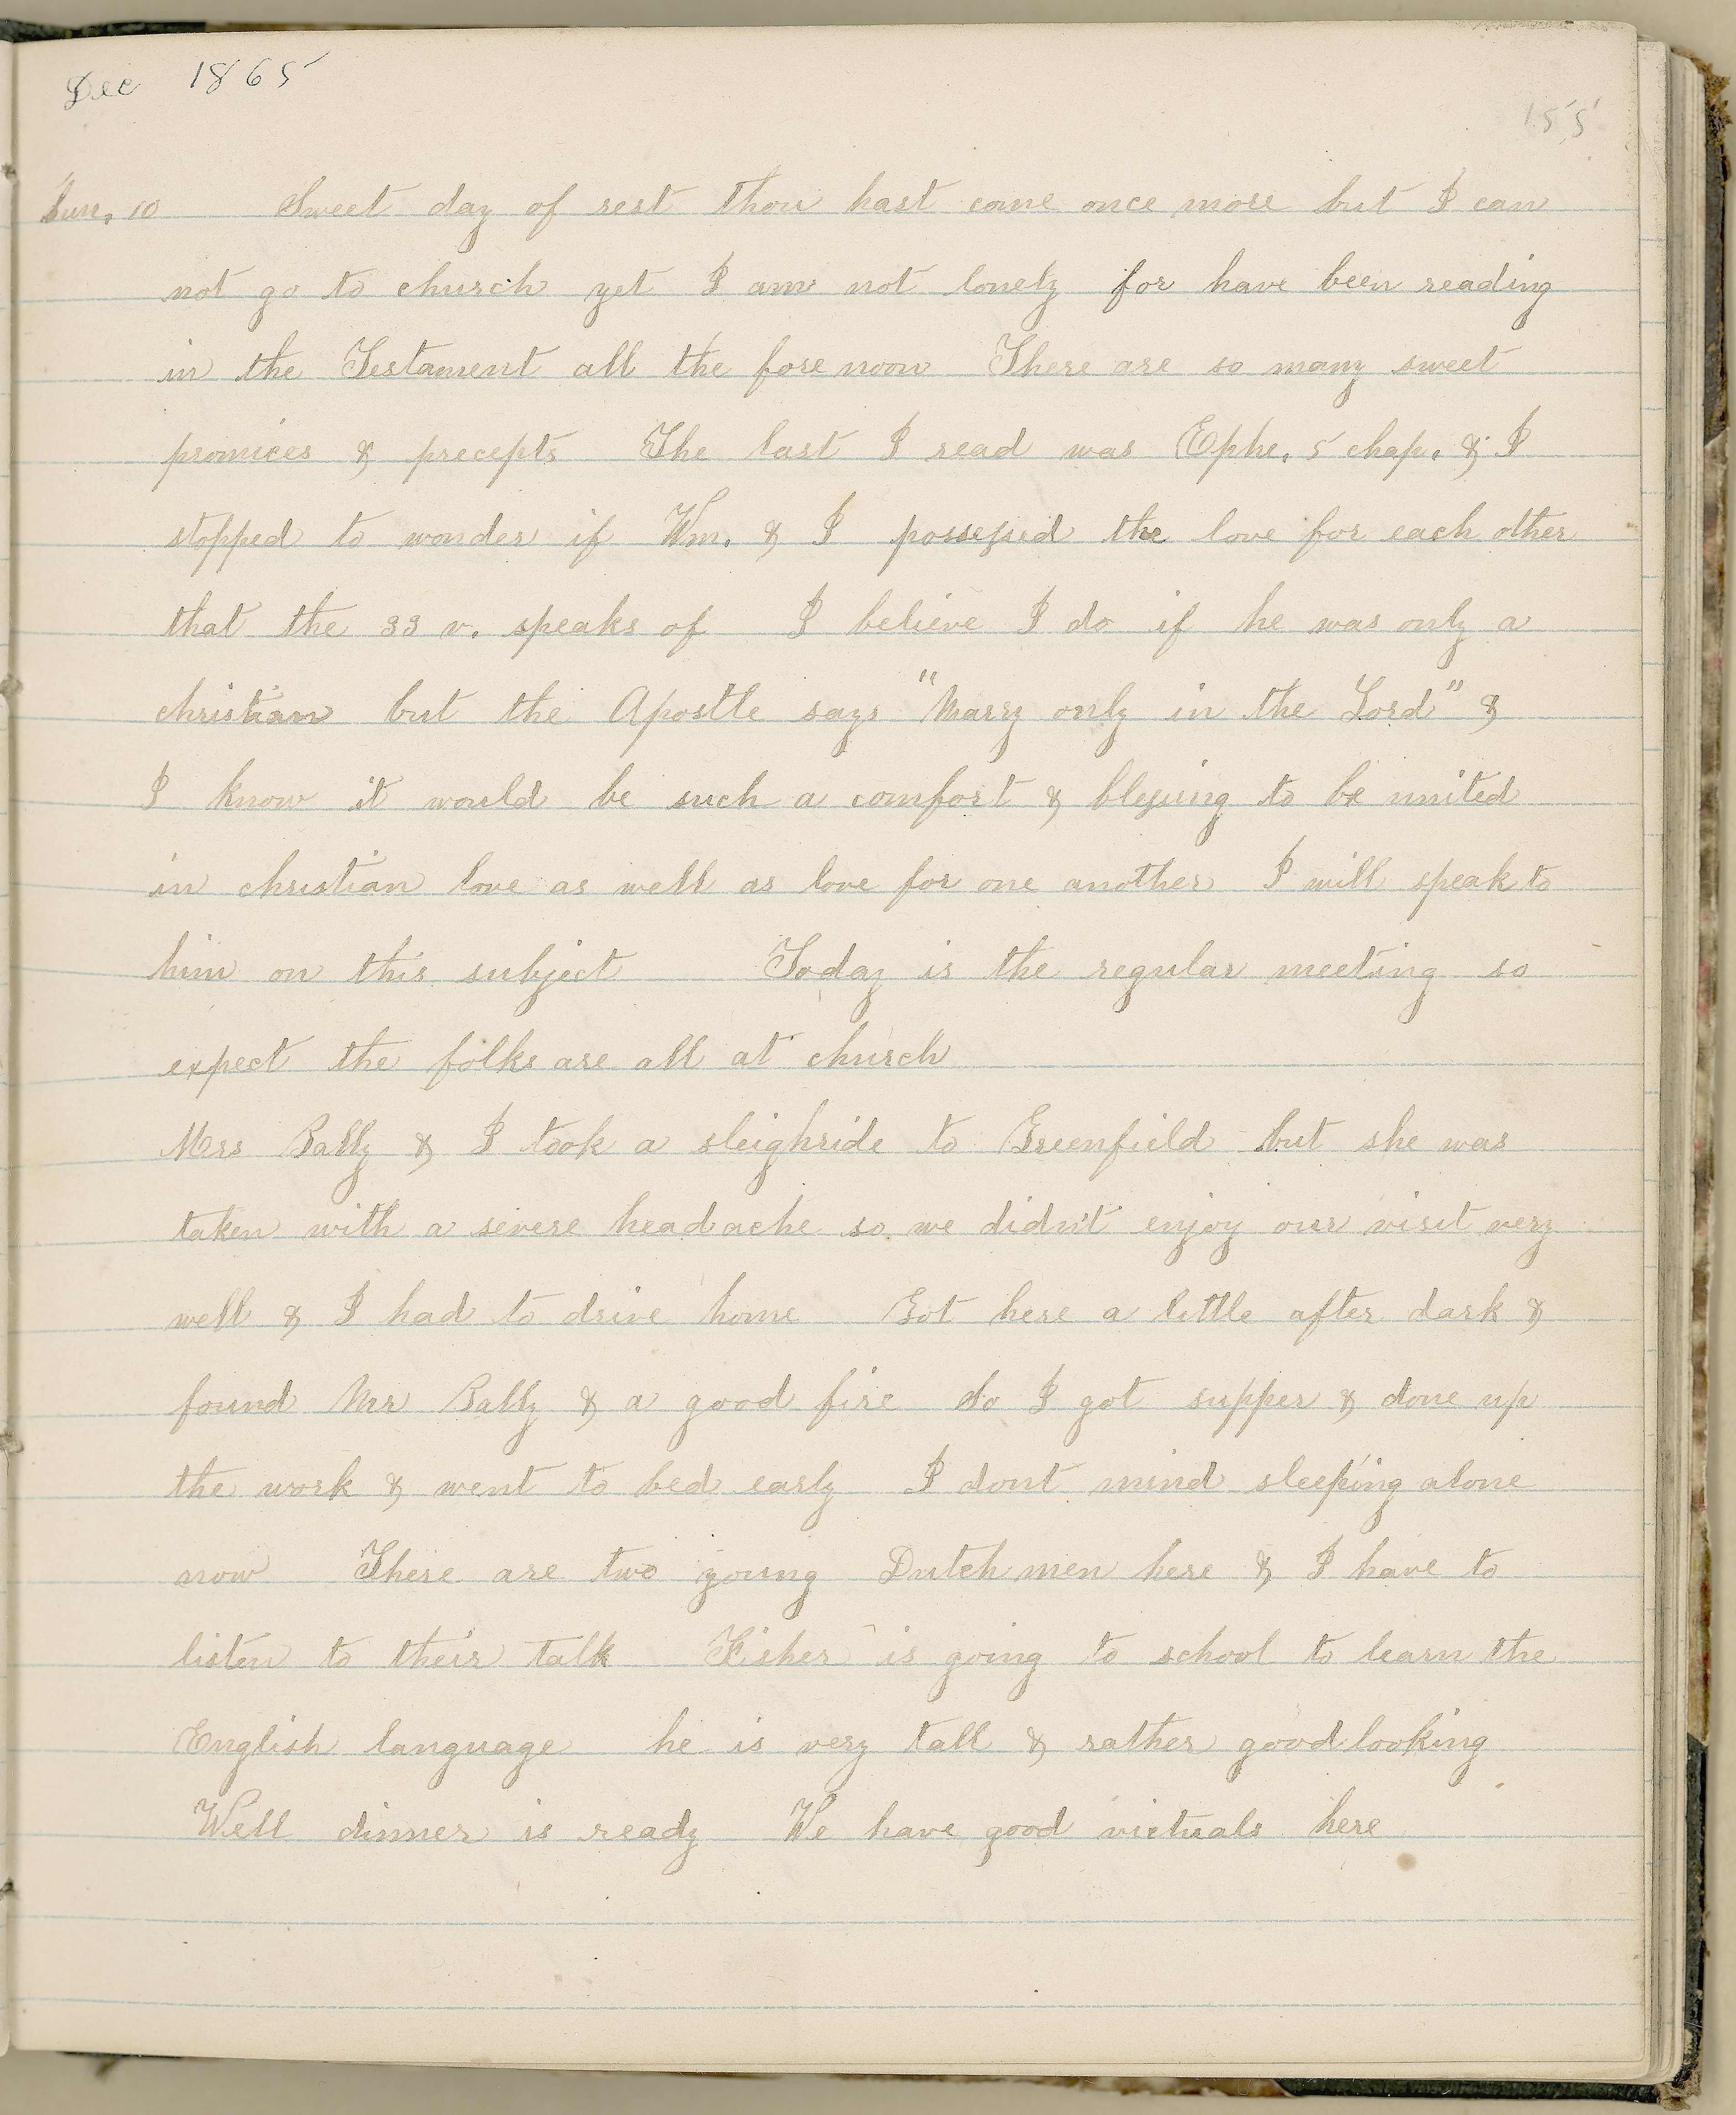 Dec 1865
155
Sun. 10 Sweet day of rest thou hast come once more but I can
not go to church yet I am not lonely for have been reading
in the Testament all the fore noon There are so many sweet
promices & precepts The last I read was Ephe. 5 chap. & I
stopped to wonder if Wm. & I possessed the love for each other
that the 33 v. speaks of I believe I do if he was only a
christian but the Apostle says "Marry only in the Lord" &
I know it would be such a comfort & blessing to be united
in christian love as well as love for one another I will speak to
him on this subject Today is the regular meeting so
expect the folks are all at church
Mrs Bally & I took a sleighride to Greenfield but she was
taken with a severe headache so we didn't enjoy our visit very
well & I had to drive home Got here a little after dark &
found Mr Bally & a good fire So I got supper & done up
the work & went to bed early I dont mind sleeping alone
now There are two young Dutch men here & I have to
listen to their talk Fisher is going to school to learn the
English language he is very tall & rather good looking
Well dinner is ready We have good victuals here